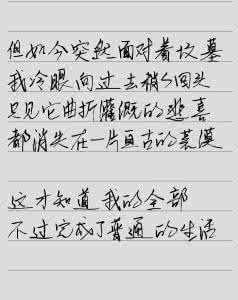 但如今突然面对着坟墓
我冷眼向过去稍稍回头
只见它曲折灌溉的悲喜
都消失在一片亘古的荒漠
这才知道我的全部
不过完成了普通的生活